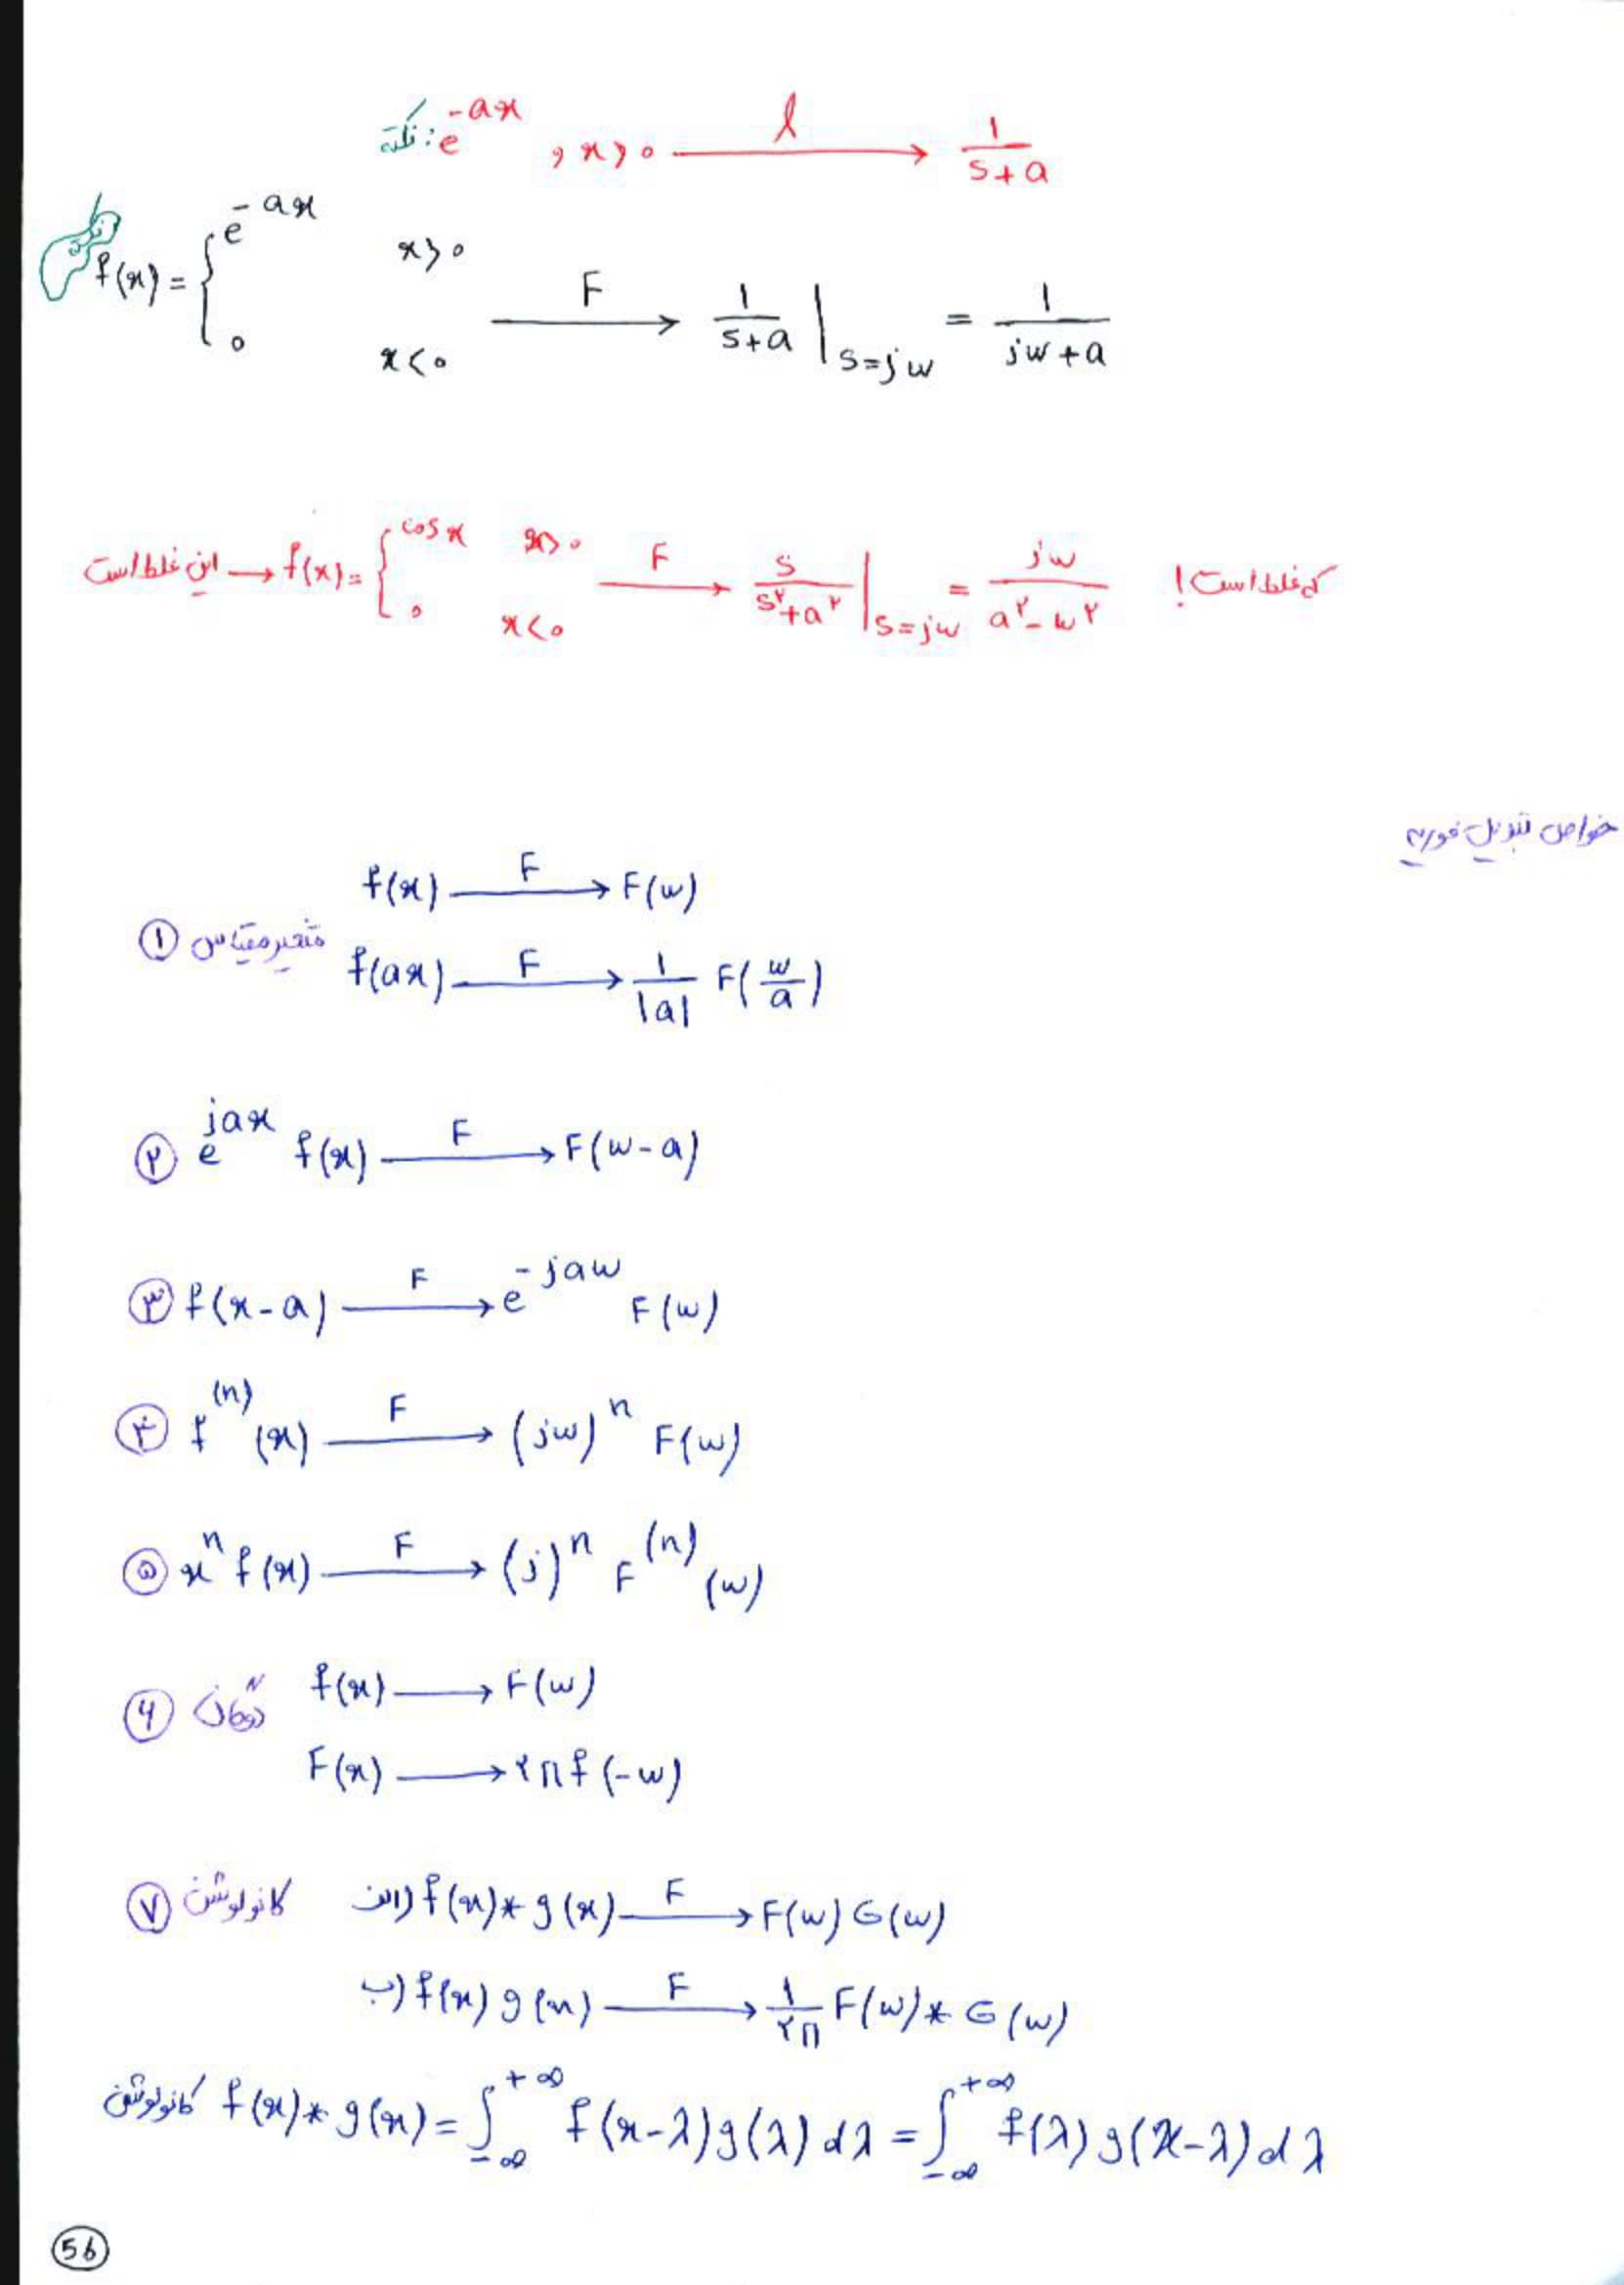 نکته: e^{-ax} , x>0 \xrightarrow{l} \frac{1}{s+a}
نکته f(x) = \begin{cases} e^{-ax} & x>0 \\ 0 & x<0 \end{cases} \xrightarrow{F} \frac{1}{s+a} |_{s=jω} = \frac{1}{jω+a}
این غلط است → f(x) = \begin{cases} cos x & x>0 \\ 0 & x<0 \end{cases} \xrightarrow{F} \frac{s}{s^۲+a^۲} |_{s=jω} = \frac{jω}{a^۲-ω^۲} که غلط است!
خواص تبدیل فوریه
f(x) \xrightarrow{F} F(ω)
① تغییر مقیاس f(ax) \xrightarrow{F} \frac{1}{|a|} F(\frac{ω}{a})
② e^{jax} f(x) \xrightarrow{F} F(ω-a)
③ f(x-a) \xrightarrow{F} e^{-jaω} F(ω)
④ f^{(n)}(x) \xrightarrow{F} (jω)^n F(ω)
⑤ x^n f(x) \xrightarrow{F} (j)^n F^{(n)}(ω)
⑥ دوگان f(x) → F(ω)
F(x) → ۲π f(-ω)
⑦ کانولوشن الف) f(x)*g(x) \xrightarrow{F} F(ω) G(ω)
ب) f(x) g(x) \xrightarrow{F} \frac{۱}{۲π} F(ω)*G(ω)
کانولوشن f(x)*g(x) = \int_{-∞}^{+∞} f(x-λ) g(λ) dλ = \int_{-∞}^{+∞} f(λ) g(x-λ) dλ
56